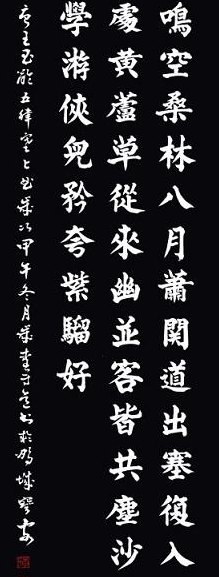 鳴空桑林八月蕭関道出塞復入
處黃蘆草從來幽並客皆共塵沙
學游俠兒矜夸紫騮好
唐王昌齡五律塞上曲歲次甲午冬月